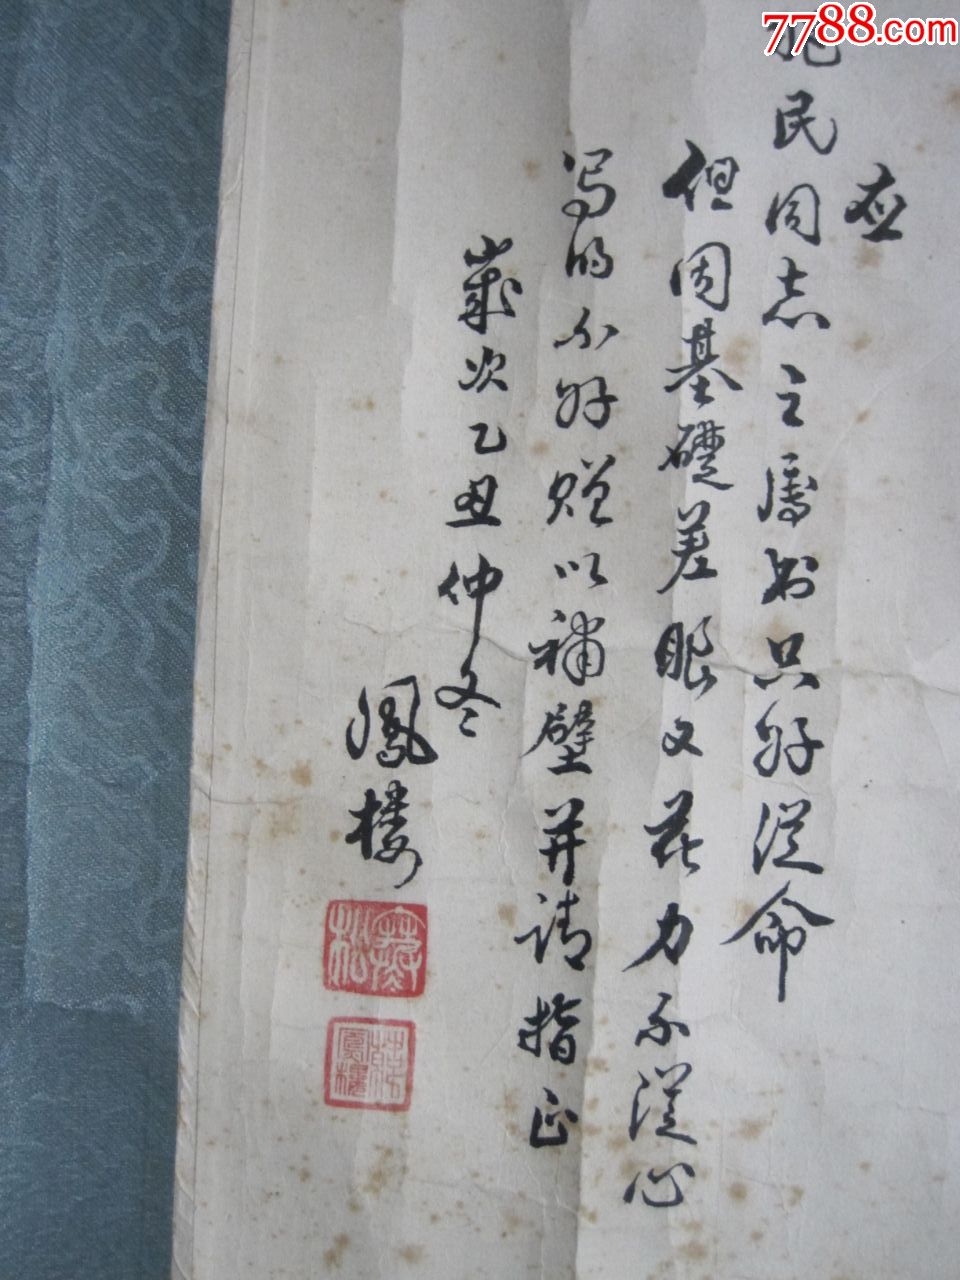 7788.com
应
民同志之属书只好从命
但因基礎差眼又花力不從心
写的不好赠以補壁并请指正
歲次乙丑仲冬
鳳樓